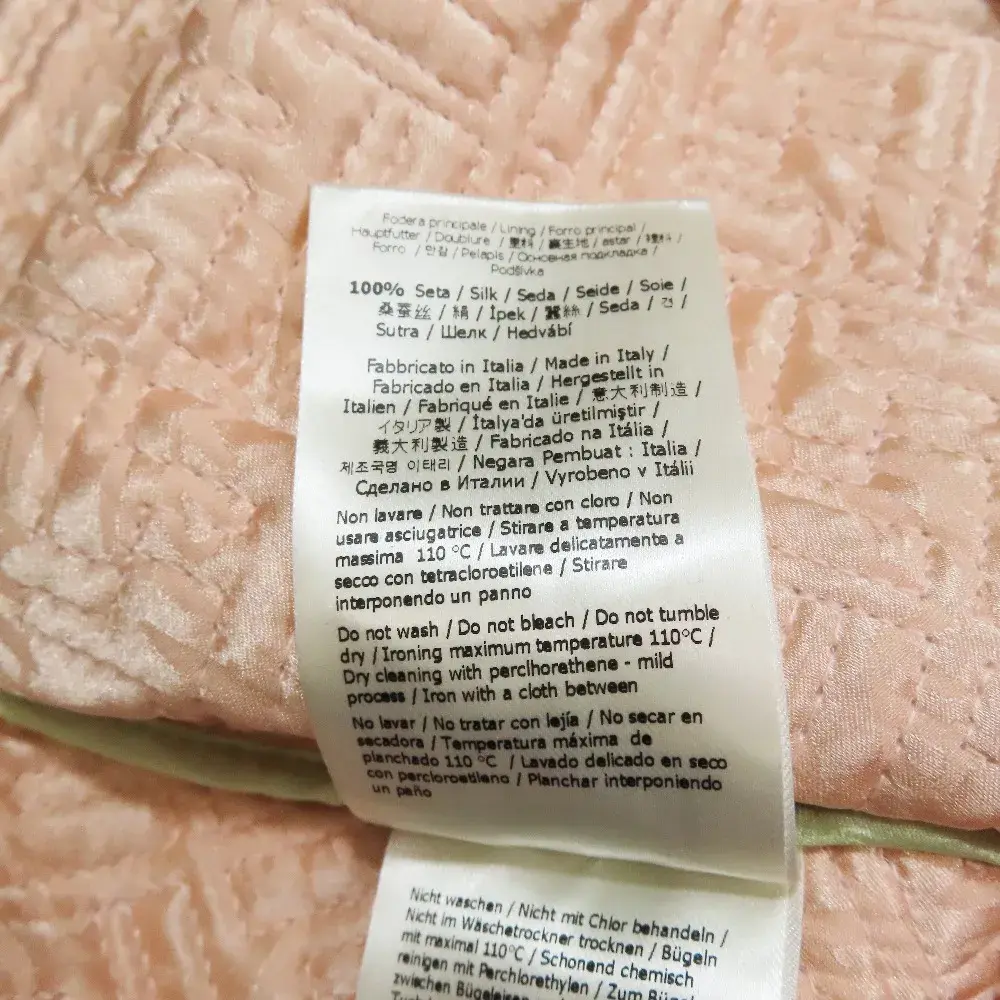 Fodera principale / Lining / Forro principal /
Hauptfutter / Doublure / 里料 / 裏生地 / astar / 裡料 /
Forro / 안감 / Pelapis / Основная подкладка /
Podšívka
100% Seta / Silk / Seda / Seide / Soie /
桑蚕丝 / 絹 / İpek / 蠶絲 / Seda / 견 /
Sutra / Шелк / Hedvábí
Fabbricato in Italia / Made in Italy /
Fabricado en Italia / Hergestellt in
Italien / Fabriqué en Italie / 意大利制造 /
イタリア製 / İtalya'da üretilmiştir /
義大利製造 / Fabricado na Itália /
제조국명 이태리 / Negara Pembuat : Italia /
Сделано в Италии / Vyrobeno v Itálii
Non lavare / Non trattare con cloro / Non
usare asciugatrice / Stirare a temperatura
massima 110 °C / Lavare delicatamente a
secco con tetracloroetilene / Stirare
interponendo un panno
Do not wash / Do not bleach / Do not tumble
dry / Ironing maximum temperature 110°C /
Dry cleaning with perclhorethene - mild
process / Iron with a cloth between
No lavar / No tratar con lejía / No secar en
secadora / Temperatura máxima de
planchado 110 °C / Lavado delicado en seco
con percloroetileno / Planchar interponiendo
un paño
Nicht waschen / Nicht mit Chlor behandeln /
Nicht im Wäschetrockner trocknen / Bügeln
mit maximal 110°C / Schonend chemisch
reinigen mit Perchlorethylen / Zum Bügeln
zwischen Bügeleisen